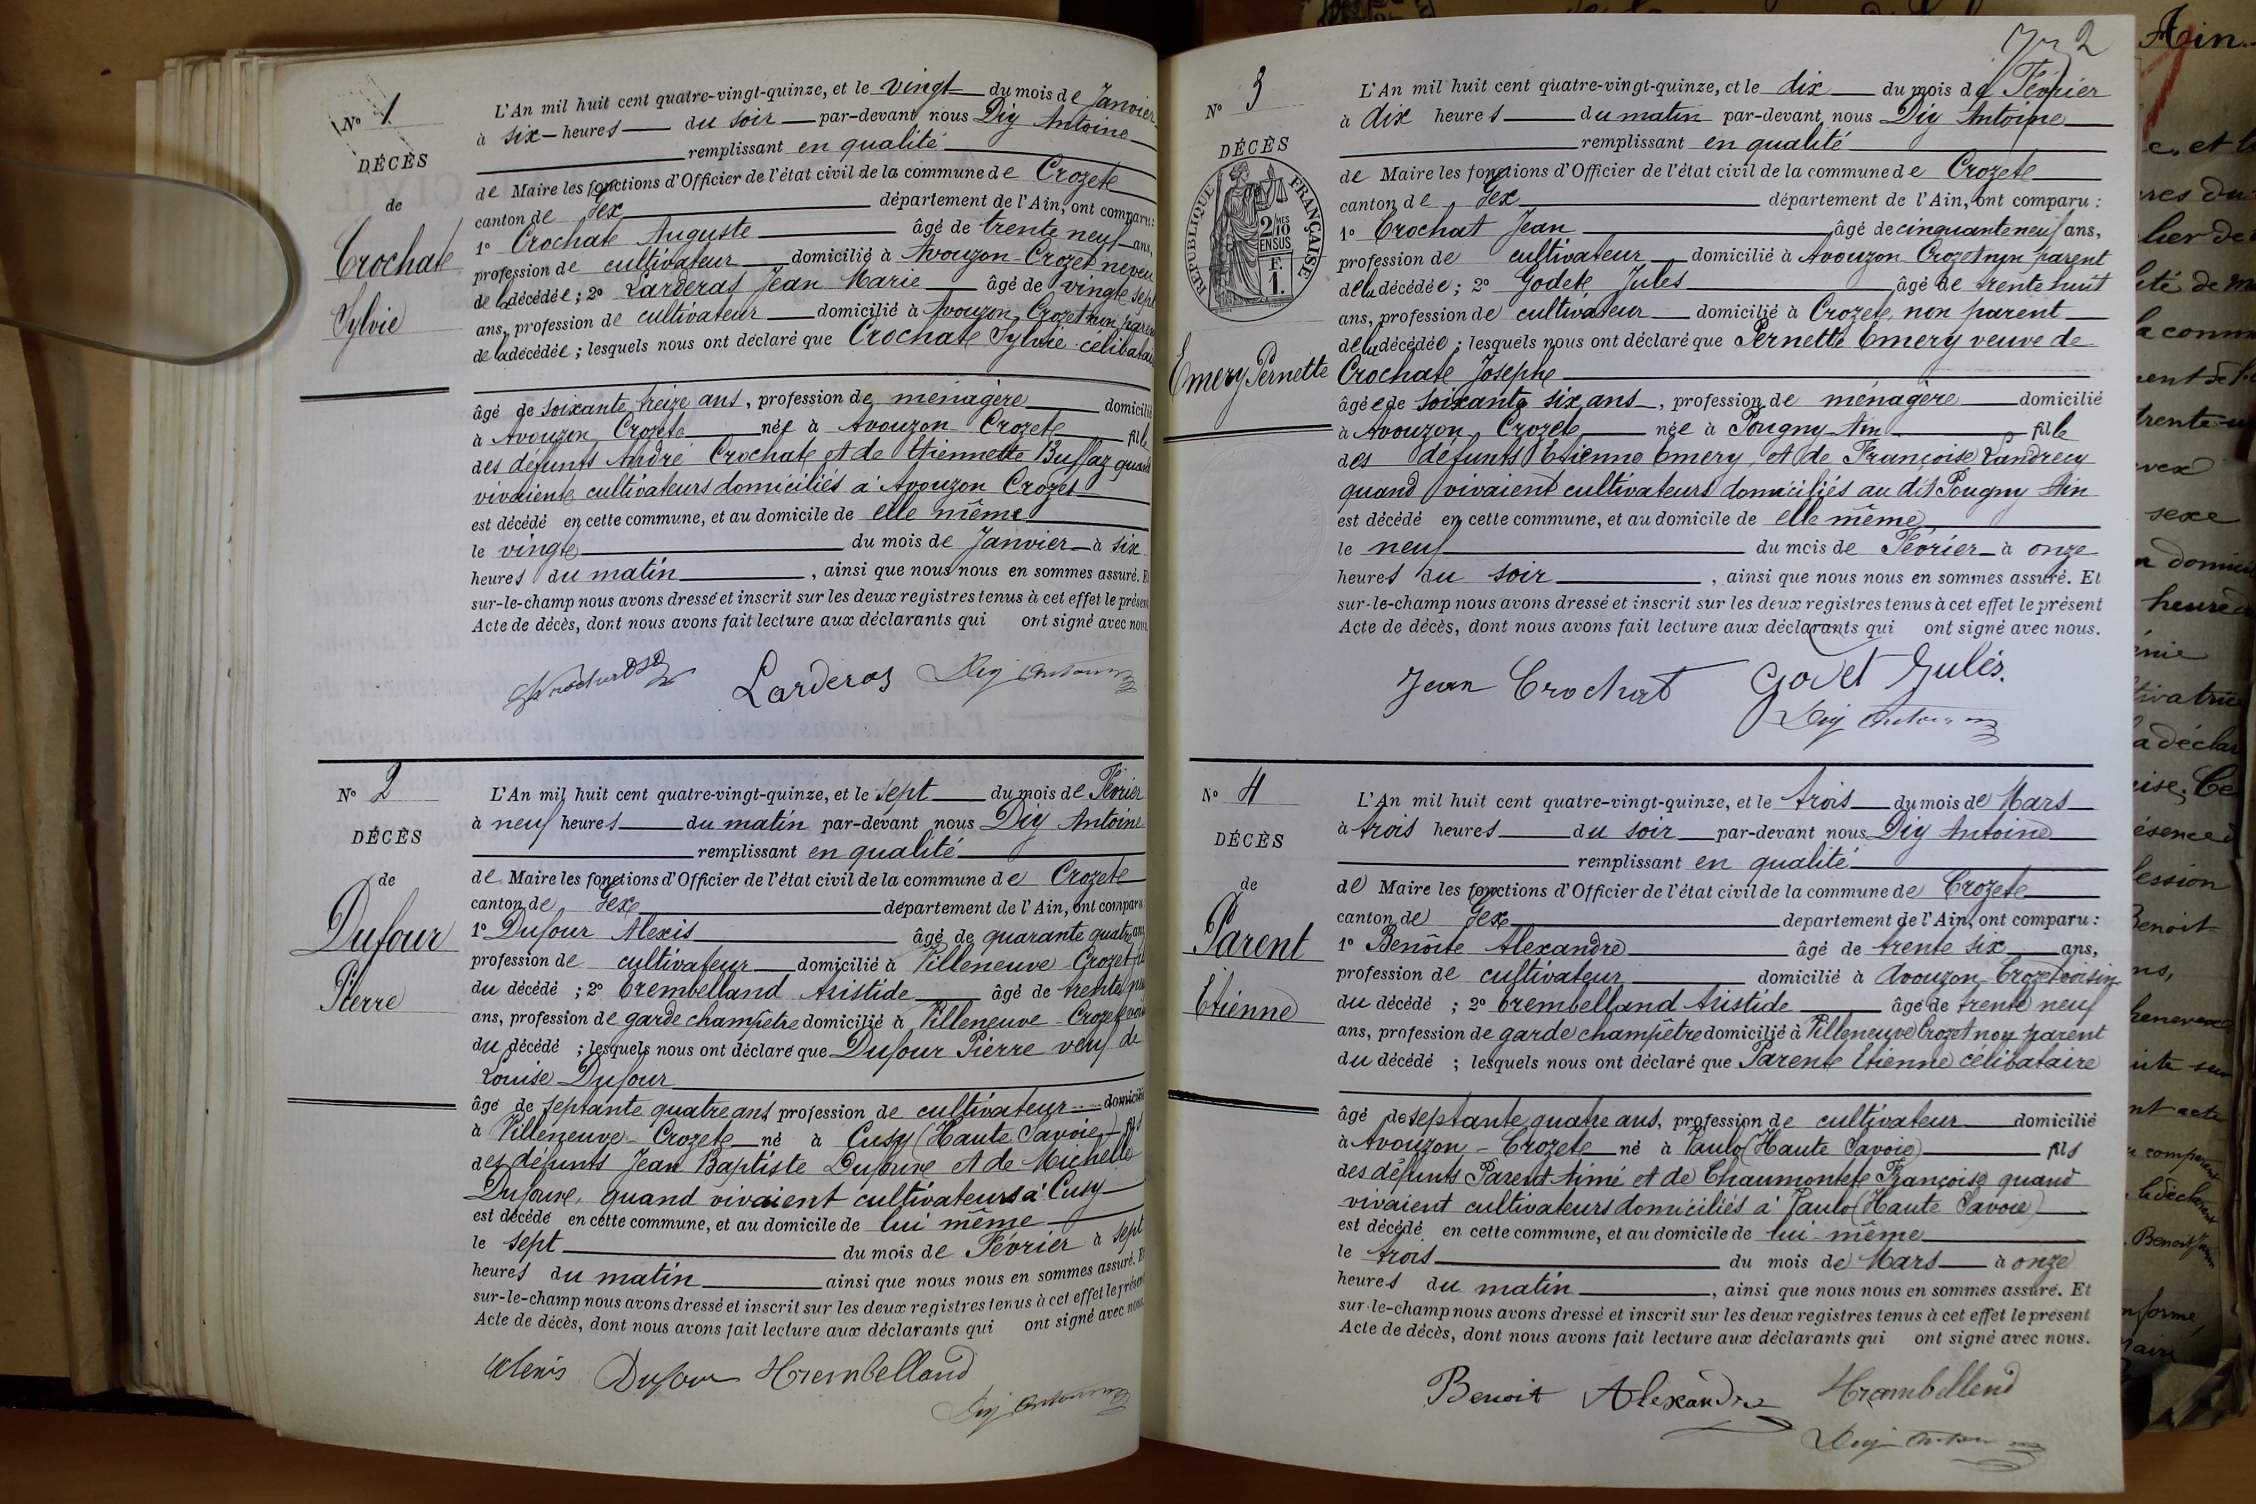 N° 1
DÉCÈS
de
Crochat
Sylvie
L'An mil huit cent quatre-vingt-quinze, et le vingt du mois de Janvier
à six heures du soir par-devant nous Dig Antoine
remplissant en qualité
de Maire les fonctions d'Officier de l'état civil de la commune de Crozet
canton de Gex département de l'Ain, ont comparu :
1° Crochat Auguste âgé de trente neuf ans,
profession de cultivateur domicilié à Avouzon-Crozet neveu
de la décédée ; 2° Larderas Jean Marie âgé de vingt sept
ans, profession de cultivateur domicilié à Avouzon Crozet non parent
de la décédée ; lesquels nous ont déclaré que Crochat Sylvie célibataire
âgé de soixante treize ans, profession de ménagère domicilié
à Avouzon Crozet née à Avouzon Crozet fille
des défunts André Crochat et de Etiennette Buffaz quand
vivaient cultivateurs domiciliés à Avouzon Crozet
est décédé en cette commune, et au domicile de elle même
le vingt du mois de Janvier à six
heures du matin, ainsi que nous nous en sommes assuré. Et
sur-le-champ nous avons dressé et inscrit sur les deux registres tenus à cet effet le présent
Acte de décès, dont nous avons fait lecture aux déclarants qui ont signé avec nous.
Larderas Dig Antoine
N° 2
DÉCÈS
de
Dufour
Pierre
L'An mil huit cent quatre-vingt-quinze, et le sept du mois de Février
à neuf heures du matin par-devant nous Dig Antoine
remplissant en qualité
de Maire les fonctions d'Officier de l'état civil de la commune de Crozet
canton de Gex département de l'Ain, ont comparu
1° Dufour Alexis âgé de quarante quatre ans
profession de cultivateur domicilié à Villeneuve Crozet fils
du décédé ; 2° Crembelland Aristide âgé de trente neuf
ans, profession de garde champêtre domicilié à Villeneuve-Crozet
du décédé ; lesquels nous ont déclaré que Dufour Pierre veuf de
Louise Dufour
âgé de septante quatre ans, profession de cultivateur domicilié
à Villeneuve-Crozet né à Cusy (Haute Savoie) fils
des défunts Jean Baptiste Dufour et de Michelle
Dufour, quand vivaient cultivateurs à Cusy
est décédé en cette commune, et au domicile de lui même
le sept du mois de Février à sept
heures du matin ainsi que nous nous en sommes assuré. Et
sur-le-champ nous avons dressé et inscrit sur les deux registres tenus à cet effet le présent
Acte de décès, dont nous avons fait lecture aux déclarants qui ont signé avec nous.
Alexis Dufour Hrembelland
Dig Antoine
N° 3
DÉCÈS
RÉPUBLIQUE FRANÇAISE
2/10 EN SUS
F. 1.
Emery Pernette
L'An mil huit cent quatre-vingt-quinze, et le dix du mois de Février
à dix heures du matin par-devant nous Dig Antoine
remplissant en qualité
de Maire les fonctions d'Officier de l'état civil de la commune de Crozet
canton de Gex département de l'Ain, ont comparu :
1° Crochat Jean âgé de cinquante neuf ans,
profession de cultivateur domicilié à Avouzon Crozet non parent
de la décédée ; 2° Godet Jules âgé de trente huit
ans, profession de cultivateur domicilié à Crozet, non parent
de la décédée ; lesquels nous ont déclaré que Pernette Emery veuve de
Crochat Joseph
âgée de soixante six ans, profession de ménagère domicilié
à Avouzon Crozet née à Pougny Ain fille
des défunts Etienne Emery, et de Françoise Landrecy
quand vivaient cultivateurs domiciliés au dit Pougny Ain
est décédé en cette commune, et au domicile de elle même
le neuf du mois de Février à onze
heures du soir, ainsi que nous nous en sommes assuré. Et
sur-le-champ nous avons dressé et inscrit sur les deux registres tenus à cet effet le présent
Acte de décès, dont nous avons fait lecture aux déclarants qui ont signé avec nous.
Jean Crochat Godet Jules.
Dig Antoine
N° 4
DÉCÈS
de
Parent
Etienne
L'An mil huit cent quatre-vingt-quinze, et le trois du mois de Mars
à trois heures du soir par-devant nous Dig Antoine
remplissant en qualité
de Maire les fonctions d'Officier de l'état civil de la commune de Crozet
canton de Gex département de l'Ain, ont comparu :
1° Benoît Alexandre âgé de trente six ans,
profession de cultivateur domicilié à Avouzon Crozet voisin
du décédé ; 2° Crembelland Aristide âgé de trente neuf
ans, profession de garde champêtre domicilié à Villeneuve Crozet non parent
du décédé ; lesquels nous ont déclaré que Parent Etienne célibataire
âgé de septante quatre ans, profession de cultivateur domicilié
à Avouzon-Crozet né à Paulo (Haute Savoie) fils
des défunts Parent Aimé et de Chaumontet Françoise quand
vivaient cultivateurs domiciliés à Paulo (Haute Savoie)
est décédé en cette commune, et au domicile de lui-même
le trois du mois de Mars à onze
heures du matin, ainsi que nous nous en sommes assuré. Et
sur-le-champ nous avons dressé et inscrit sur les deux registres tenus à cet effet le présent
Acte de décès, dont nous avons fait lecture aux déclarants qui ont signé avec nous.
Benoit Alexandre Hrembellend
Dig Antoine
Ain.